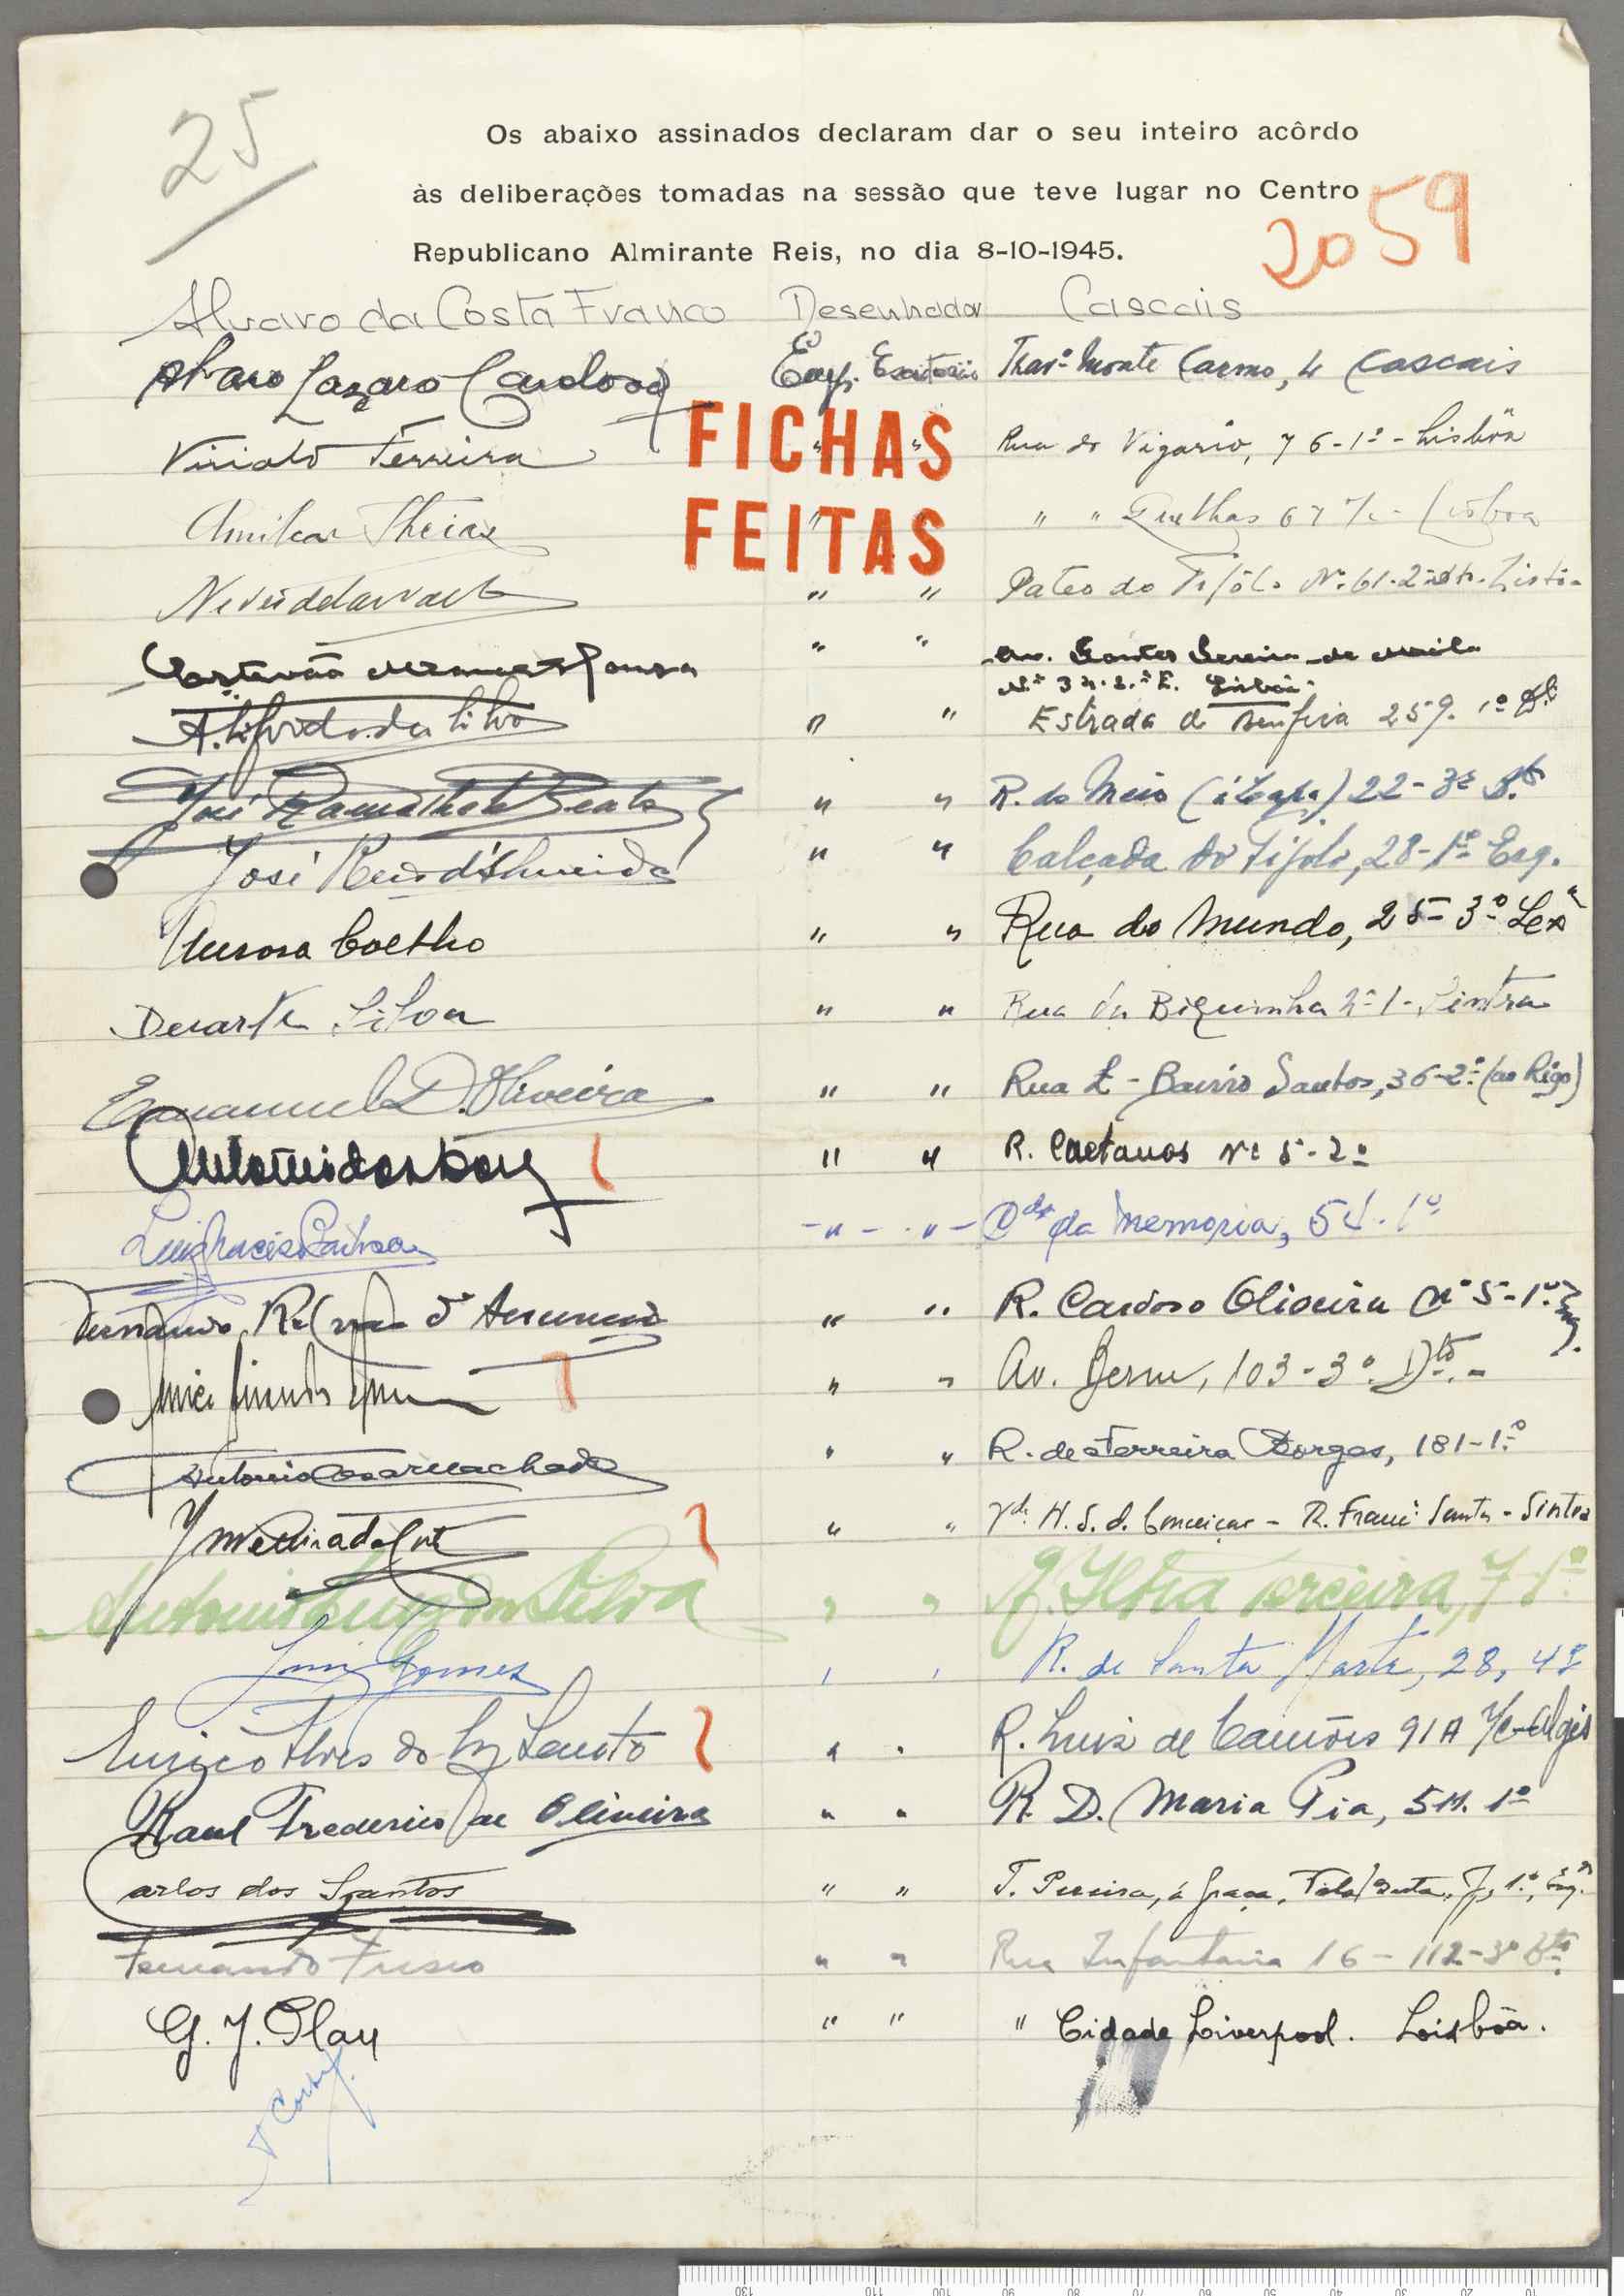 25
Os abaixo assinados declaram dar o seu inteiro acôrdo
às deliberações tomadas na sessão que teve lugar no Centro
Republicano Almirante Reis, no dia 8-10-1945.
2059
Alvaro da Costa Franco Desenhador Cascais
Alvaro Lazaro Cardoso Emp. Escritorio Trav.ª Monte Carmo, 4 Cascais
FICHAS
Viriato Ferreira " " Rua do Vigario, 76-1º - Lisbôa
FEITAS
Amilcar " " " 67 Lisboa
" " Pateo do Tijôlo Nº 61-2º
" " Av. Fontes Pereira de Melo
Nº 34-2.º E. Lisboa
A. da Silva " " Estrada de Benfica 259-1º Dt.
José Ramalhete " " R. do Meio (á Lapa) 22-3º Dt.
José Reis d'Almeida " " Calçada do Tijolo, 28-1º Esq.
Aurora Coelho " " Rua do Mundo, 25-3º Lxª
Duarte Silva " " Rua da Biquinha nº 1 - Sintra
Emanuel D. Oliveira " " Rua L - Bairro Santos, 36-2º (ao Rêgo)
" " R. Caetanos Nº 5-2º
Luiz " " da Memoria, 54-1º
Fernando " " R. Cardoso Oliveira nº 5-1º Esq.
" " Av. Berne, 103-3º Dto.
Antonio Cesar Machado " " R. de Ferreira Borges, 181-1º
" " N. S. d. Conceiçao - R. Santos - Sintra
Antonio Luiz da Silva " " R. Ilha Terceira, 7-1º
Luiz Gomes " " R. de Santa Marta, 28, 4º
Eurico Alves do Couto " " R. Luis de Camões 91A r/c - Algés
Raul Frederico de Oliveira " " R. D. Maria Pia, 511-1º
Carlos dos Santos " " T. Pereira, á Graça, 7, 1.º, Esq.
Fernando " " Rua Infantaria 16 - 112-3º Dto.
G. J. Play " " " Cidade Liverpool. Lisbôa.